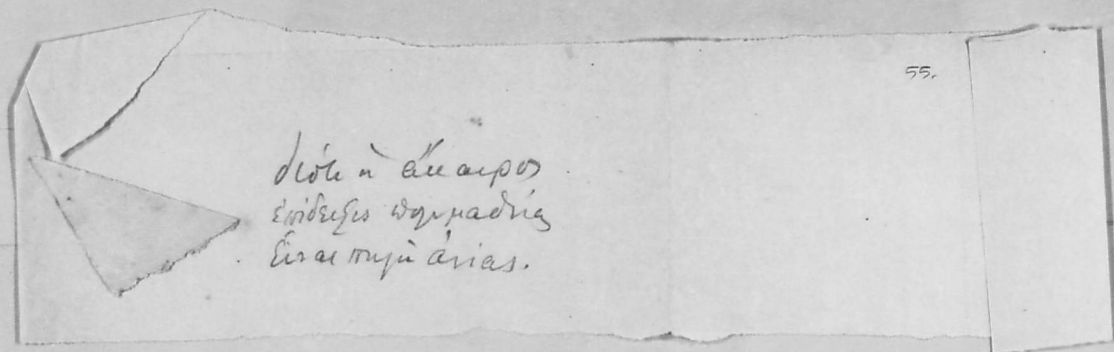 55.
διότι ἡ ἄκαιρος
ἐπίδειξις πολυμαθείας
εἶναι πηγὴ ἀνίας.